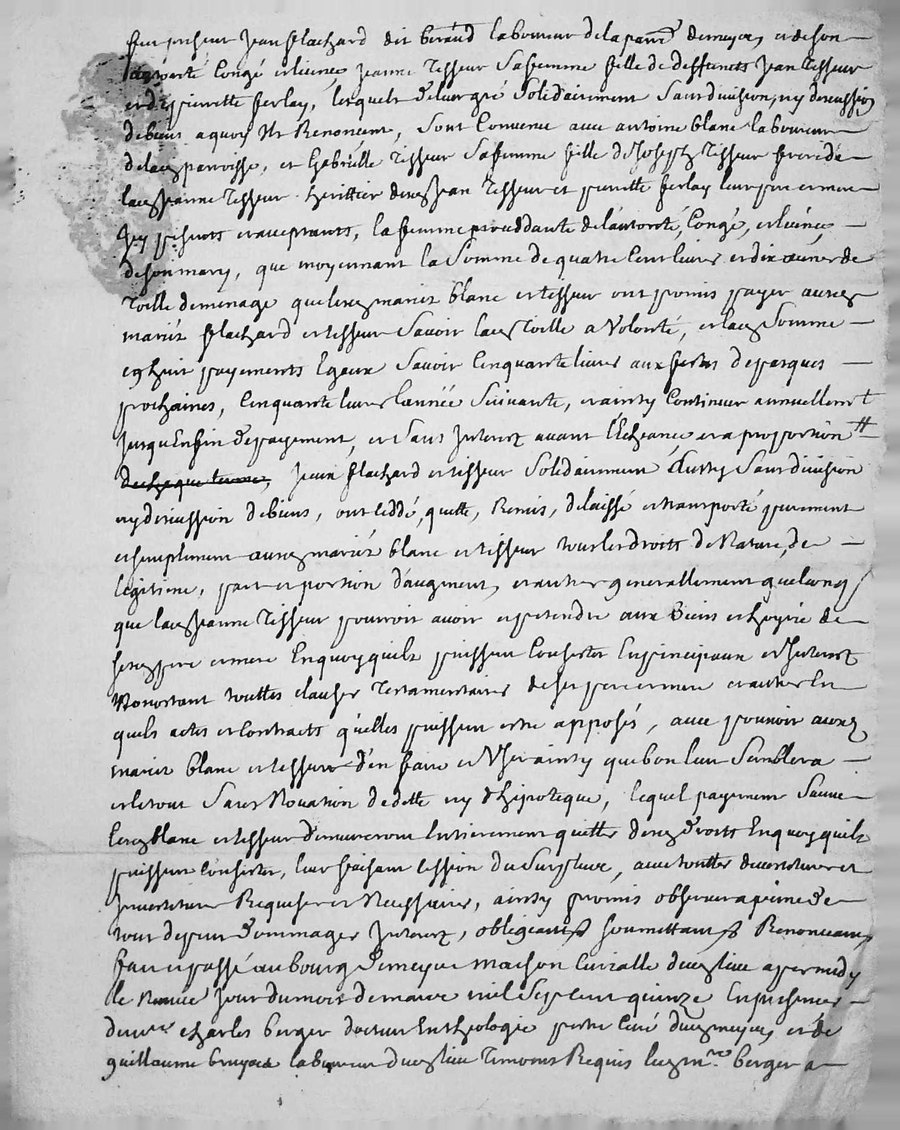 fut présent Jean flachard dit beraud laboureur de la parr.e de meyes, et de son
authorité Congé et licence Jeanne Tisseur Sa femme fille de deffuncts Jean Tisseur
et de pierrette ferlay, lesquels de leur gré Solidairement Sans division, ny discussion
de biens a quoy Ils Renoncent, Sont Convenu avec antoine blanc laboureur
de lad parroisse, et Gabrielle Tisseur Sa femme fille de Joseph Tisseur frere de
lad Jeanne Tisseur heritier desd Jean Tisseur et pierrette ferlay leur pere et mere
Icy présents et acceptants, la femme procédante de l'autorité, Congé, et licence
de son mary, que moyennant la Somme de quatre Cent livres et dix aunes de
Toille de menage que lesd mariéz blanc et tisseur ont promis payer auxd
mariéz flachard et tisseur Savoir lad Toille a Volonté, et lad Somme
en huit payements Egaux Savoir Cinquante livres aux festes de pasques
prochaines, Cinquante livres l'année Suivante, et ainsy Continuer annuellemt
Jusqu'En fin de payement, et Sans Interest avant l'Echeance et a proportion
de chaque terme, Jeux flachard et tisseur Solidairement aussy Sans division
ny discussion de biens, ont Ceddé, quitté, Remis, delaissé et transporté purement
et simplement auxd mariéz blanc et tisseur tous les droits de Nature, de
legitime, part et portion d'augment, et autres generallement quelconq
que lad Jeanne Tisseur pouvoit avoir et pretendre aux Biens et hoyrie de
sesd pere et mere En quoy qu'ils puissent Consister En principaux et Interest
Nonobstant touttes clauses Testamentaires de ses pere et mere et autres En
quels actes et Contracts qu'elles puissent estre apposés, avec pouvoir auxd
mariéz blanc et tisseur d'en faire et User ainsy que bon leur Semblera
et le tout Sans Novation de dette ny d'hipoteque, lequel payement Suivi
lesd blanc et tisseur demeureront Entierement quittes desd droits En quoy qu'ils
puissent Consister, leur faisant Cession du Surplus, avec touttes devestitures et
Investitures Requises et Necessaires, ainsy promis observer a peine de
tout despens dommages Interest, obligeants soumettants Renonceants
fait et passé au bourg de meyes maison Curialle dud lieu apres midy
le jour du mois de mars mil Sept cent quinze En présence
de mre charles berger docteur En theologie prétre Curé dud meyes, et de
guillaume laboureur dud lieu Temoins Requis led mre berger a